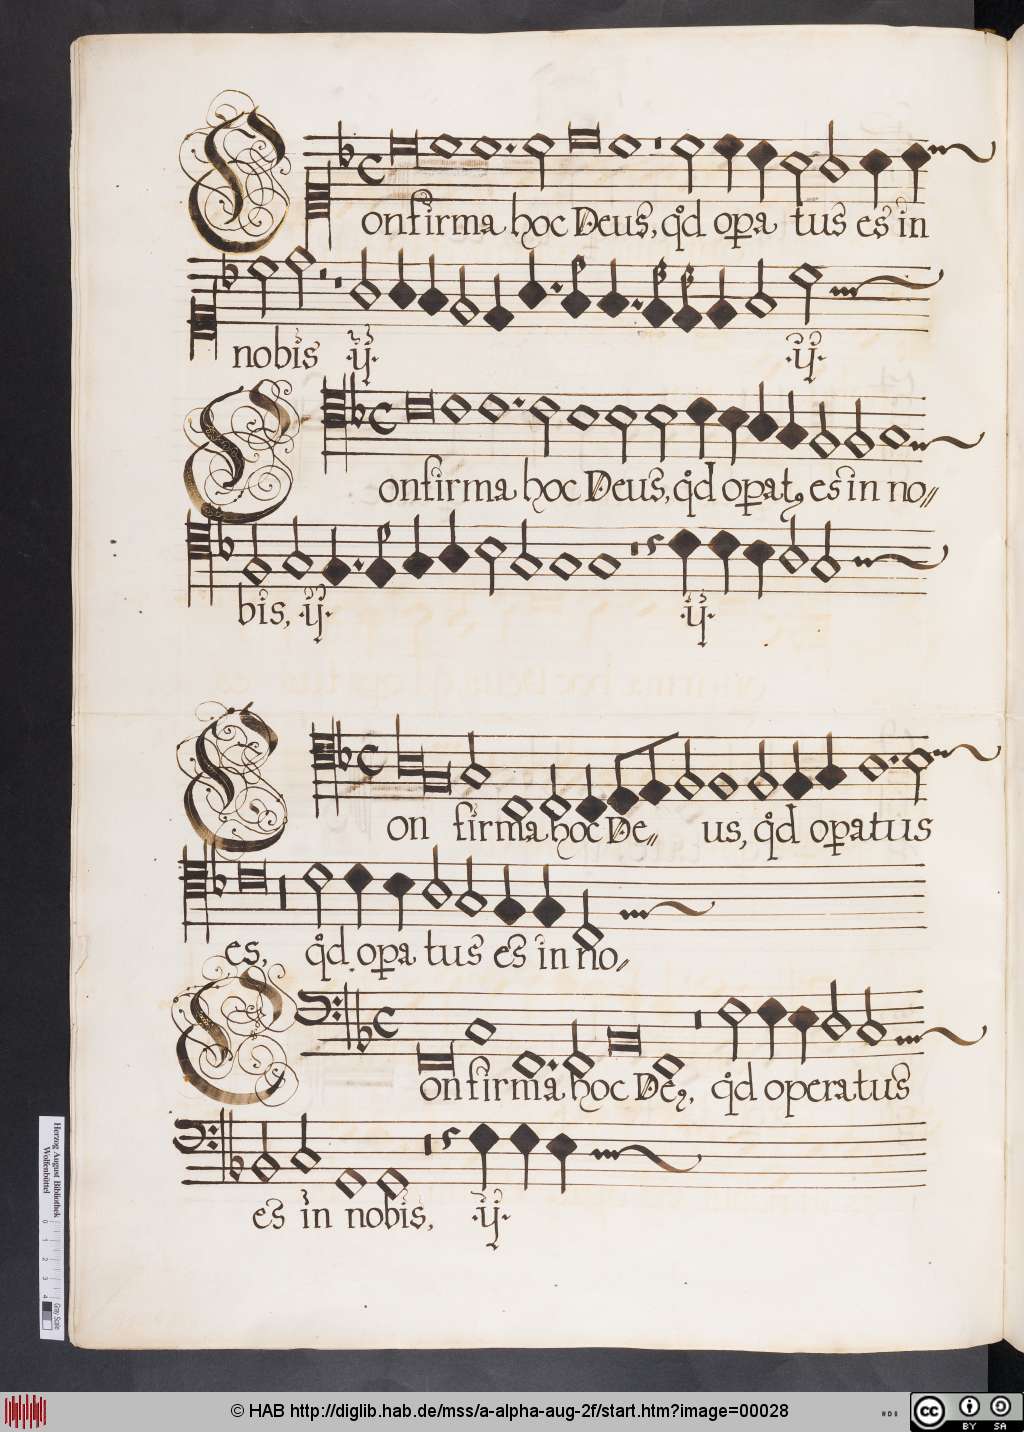 Confirma hoc Deus, qd opera tus es in
nobis .ij. .ij.
Confirma hoc Deus, qd operatꝰ es in no//
bis, .ij. .ij.
Con firma hoc De// us, qd operatus
es, qd opera tus es in no//
Confirma hoc Deꝰ, qd operatus
es in nobis, .ij.
Herzog August Bibliothek
Wolfenbüttel
0 1 2 3 4
Gray Scale
© HAB http://diglib.hab.de/mss/a-alpha-aug-2f/start.htm?image=00028
cc BY SA